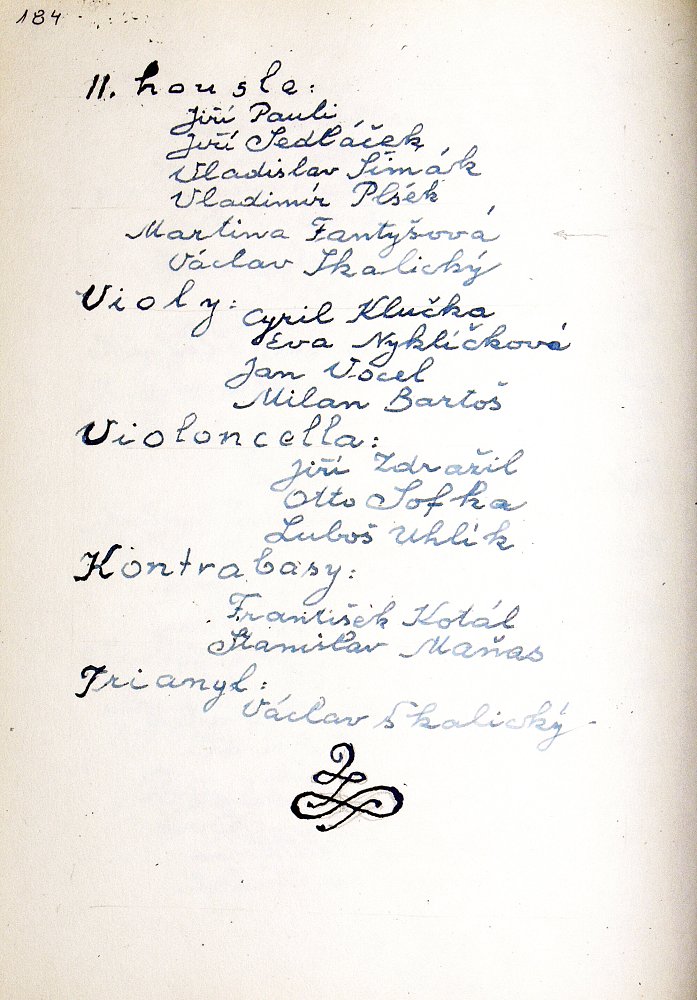 184
II. housle:
Jiří Pauli
Jiří Sedláček
Vladislav Šimák
Vladimír Plšek
Martina Fantyšová
Václav Skalický
Violy:
Cyril Klučka
Eva Nyklíčková
Jan Vocel
Milan Bartoš
Violoncella:
Jiří Zdražil
Otto Sofka
Luboš Uhlík
Kontrabasy:
František Kotál
Stanislav Maňas
Triangl:
Václav Skalický